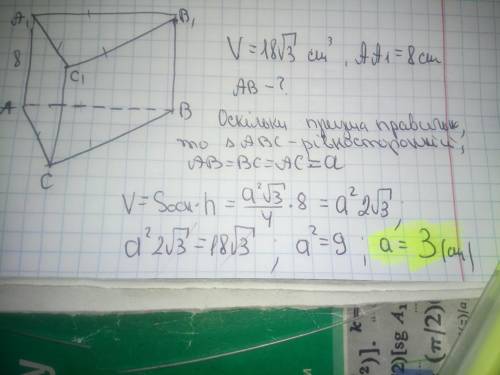 A₁
B₁
8
C₁
A
B
C
V = 18√3 см³, AA₁ = 8 см
AB - ?
Оскільки призма правильна,
то △ABC - рівносторонній,
AB = BC = AC = a
V = Sосн·h = a²√3/4 · 8 = a² 2√3;
a² 2√3 = 18√3; a² = 9; a = 3 (см)